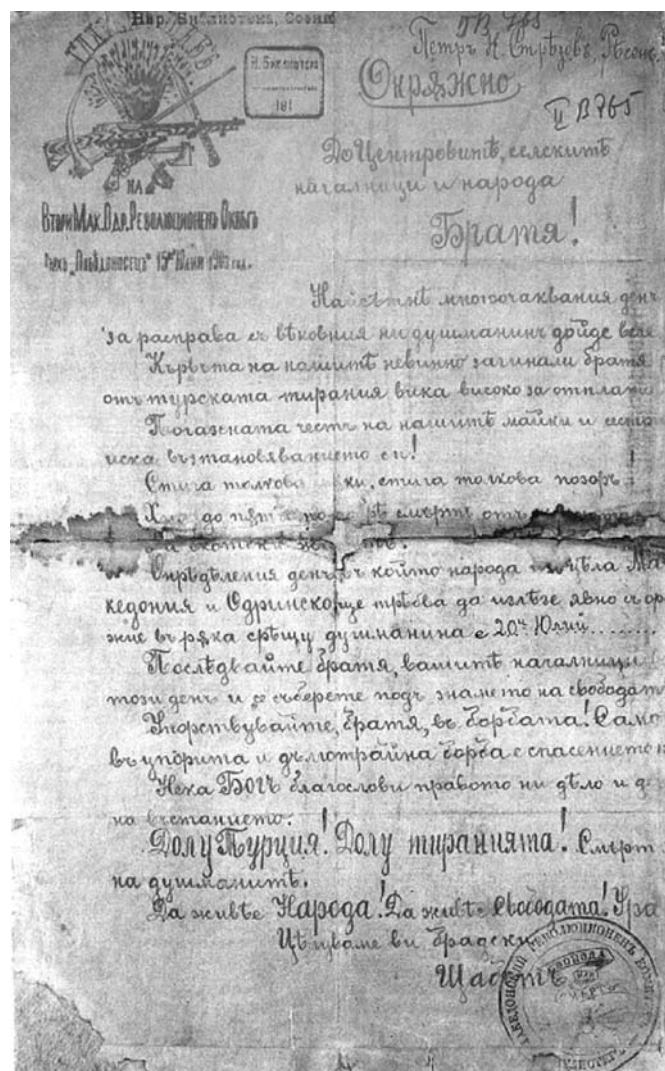 Нар. Библиотека, София
ГЛАВЕНЪ ЩАБЪ
Н. Библиотека
191
Петръ Н. , Ресенъ.
Окрѫжно
II В 765
До Центровитѣ, селскитѣ
началници и народа
НА
Втори Мак. Одр. Революционенъ Окрѫгъ
"Побѣдоносецъ" 15й Юлий 1903 год.
Братя!
Най-сѣтнѣ многоочаквания день
за расправа съ вѣковния ни душманинъ дойде вече
Кръвьта на нашитѣ невинно загинали братя
отъ турската тирания вика високо за отплата
Погазената честь на нашитѣ майки и сестри
иска възтановяванието си!
Стига толкова мѫки, стига толкова позоръ!
до смърть отъ
Опрѣдѣления день, въ който народа въ цѣла Ма
кедония и Одринско ще трѣбва да излѣзе явно съ ор
жие въ рѫка срѣщу душманина е 20й Юлий........
Послѣдвайте братя, вашитѣ началници
този день и се съберете подъ знамето на свободат
Упорствувайте, братя, въ борбата! Само
въ упорита и дълготрайна борба е спасението н
Нека Богъ благослови правото ни дѣло и д
на въстанието.
Долу Турция! Долу тиранията! Смърт
на душманитѣ.
Да живѣе Народа! Да живѣе Свободата! Ура
Цѣлуваме ви братски
Щабътъ
РЕВОЛЮЦИОНЕНЪ
СВОБОДА
ИЛИ
СМЪРТЬ